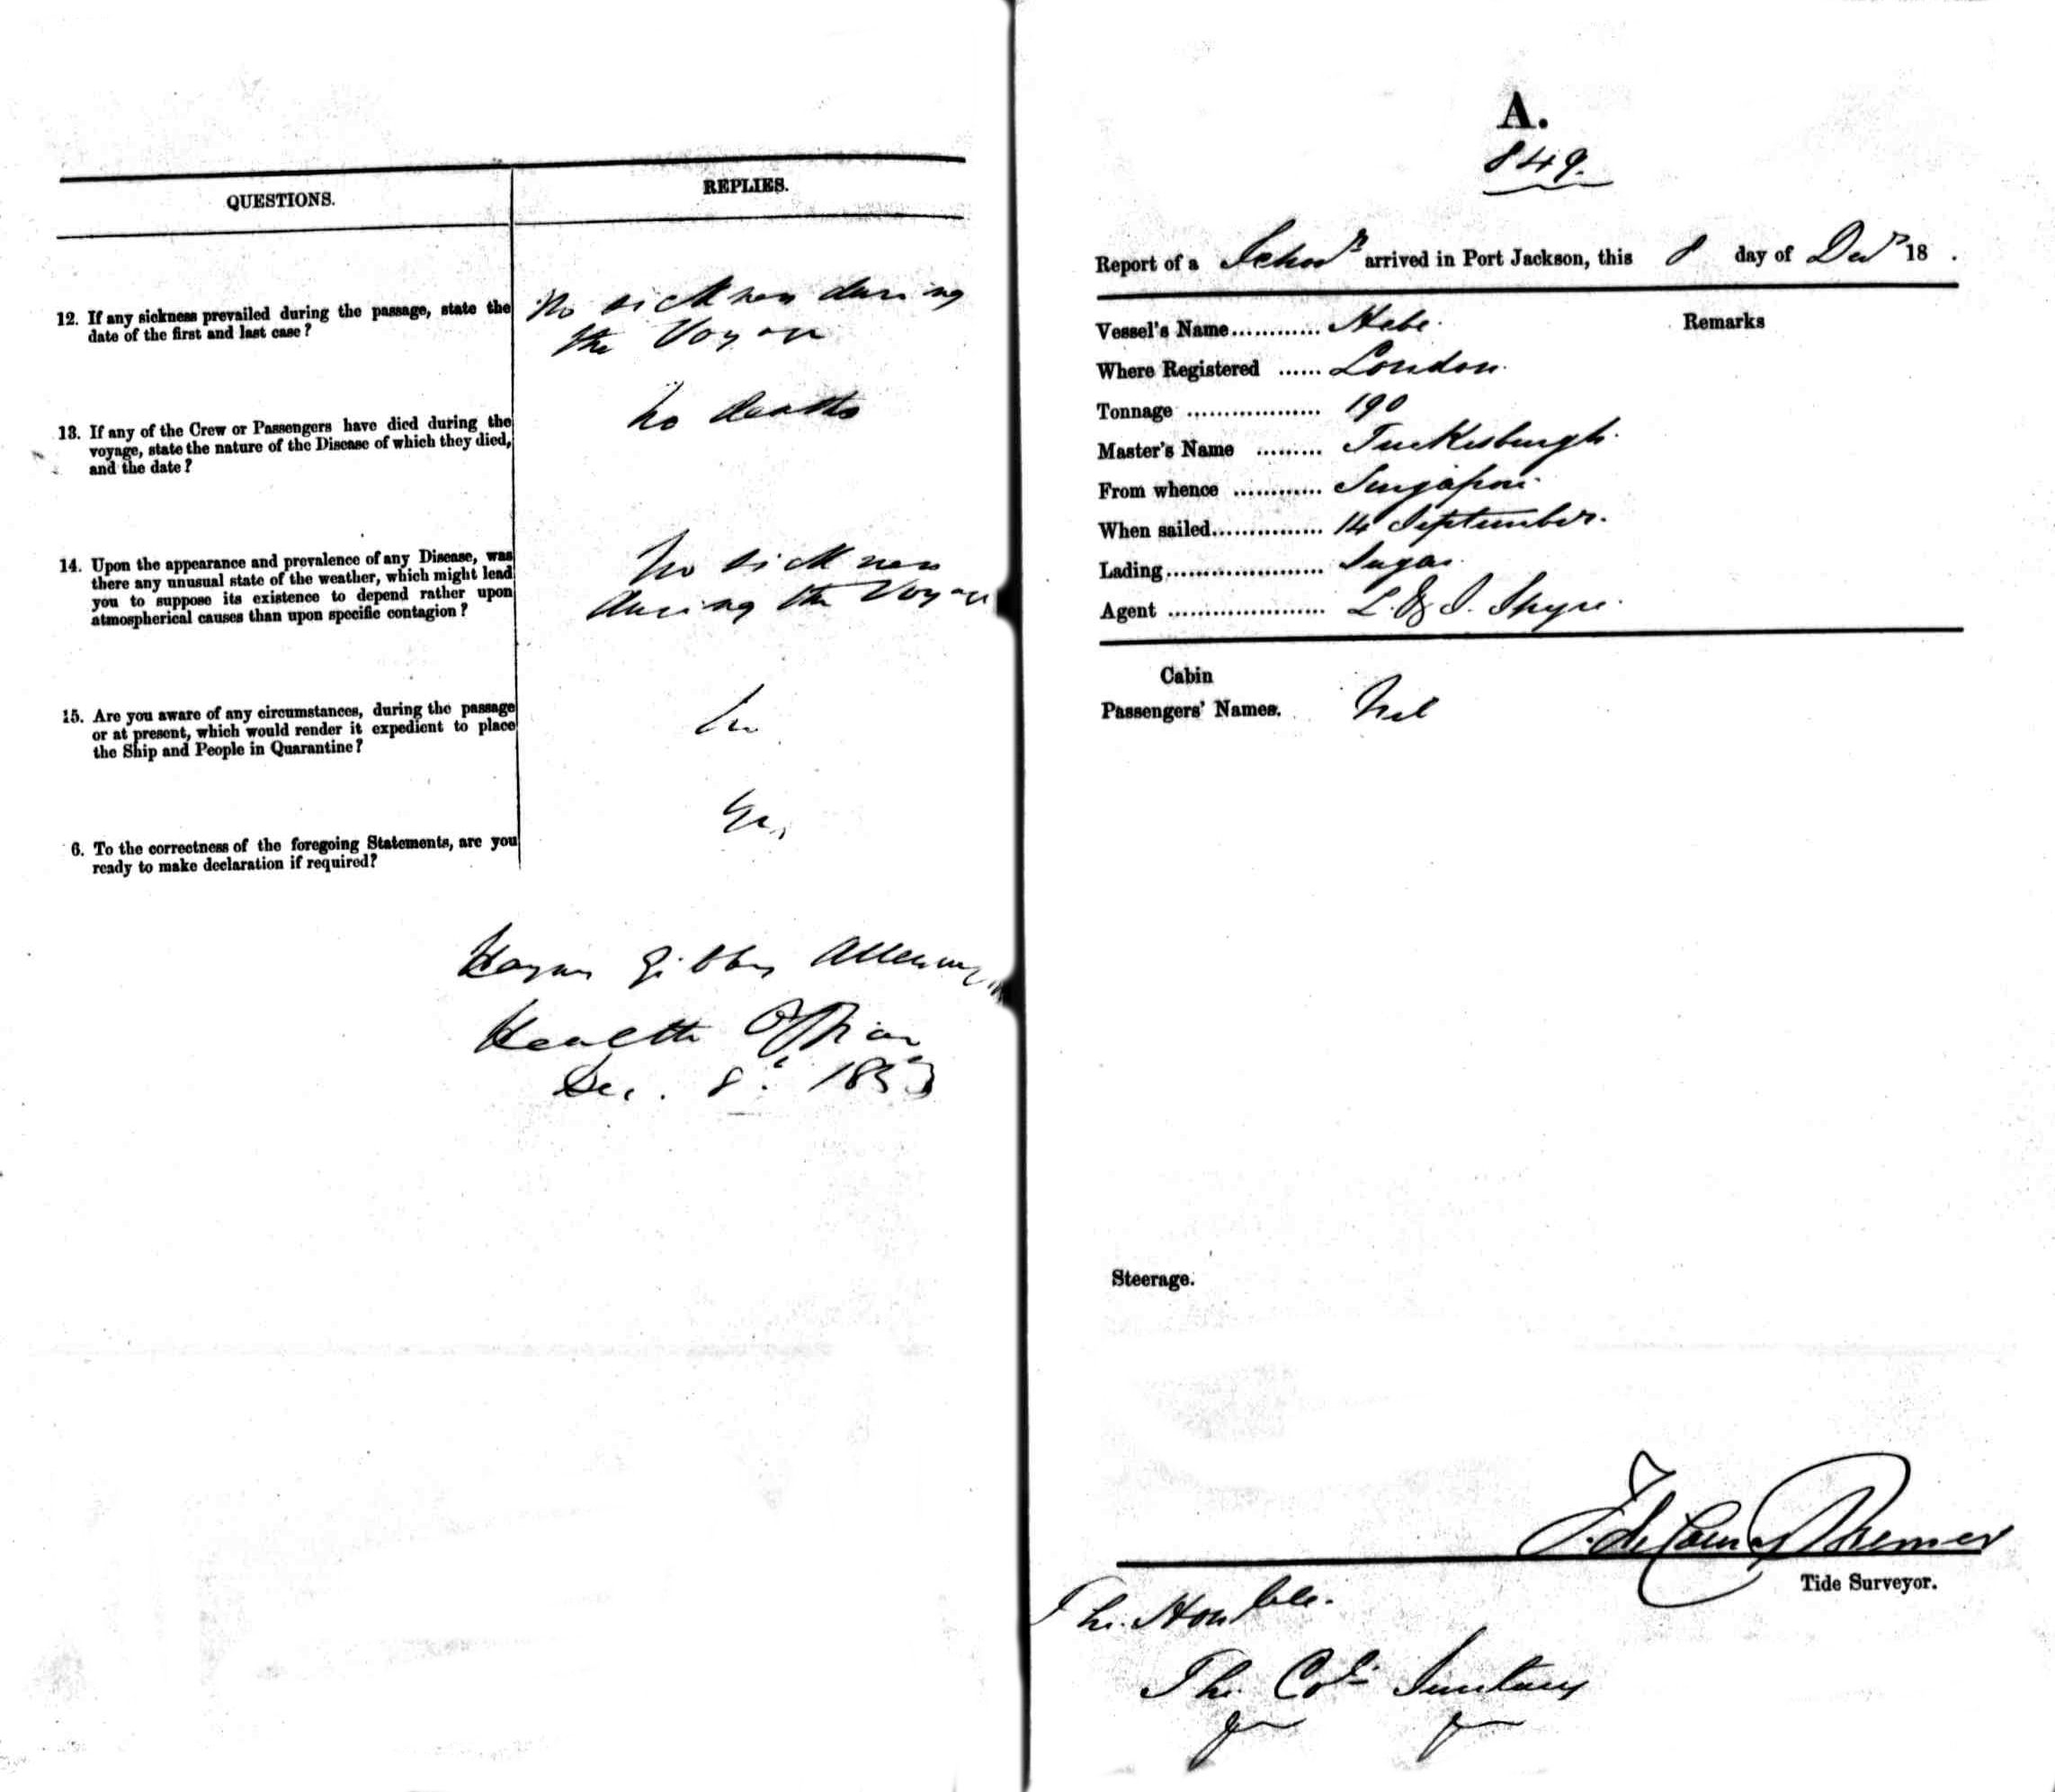 QUESTIONS.
REPLIES.
12. If any sickness prevailed during the passage, state the
date of the first and last case?
No sickness during
the Voyage
13. If any of the Crew or Passengers have died during the
voyage, state the nature of the Disease of which they died,
and the date?
No deaths
14. Upon the appearance and prevalence of any Disease, was
there any unusual state of the weather, which might lead
you to suppose its existence to depend rather upon
atmospherical causes than upon specific contagion?
No sickness
during the Voyage
15. Are you aware of any circumstances, during the passage
or at present, which would render it expedient to place
the Ship and People in Quarantine?
No
6. To the correctness of the foregoing Statements, are you
ready to make declaration if required?
Yes
Haynes Gibbes Alleyne
Health Officer
Dec. 8th 1853
A.
849.
Report of a Schoor arrived in Port Jackson, this 8 day of Decr 18 .
Remarks
Vessel's Name............ Hebe.
Where Registered ...... London.
Tonnage .................. 190
Master's Name .........
From whence ............ Singapore.
When sailed............... 14 September.
Lading..................... Sugar.
Agent ..................... L. & S. Spyer.
Cabin
Passengers' Names. Nil
Steerage.
Bremer
Tide Surveyor.
The Honble.
The Coll. Secretary